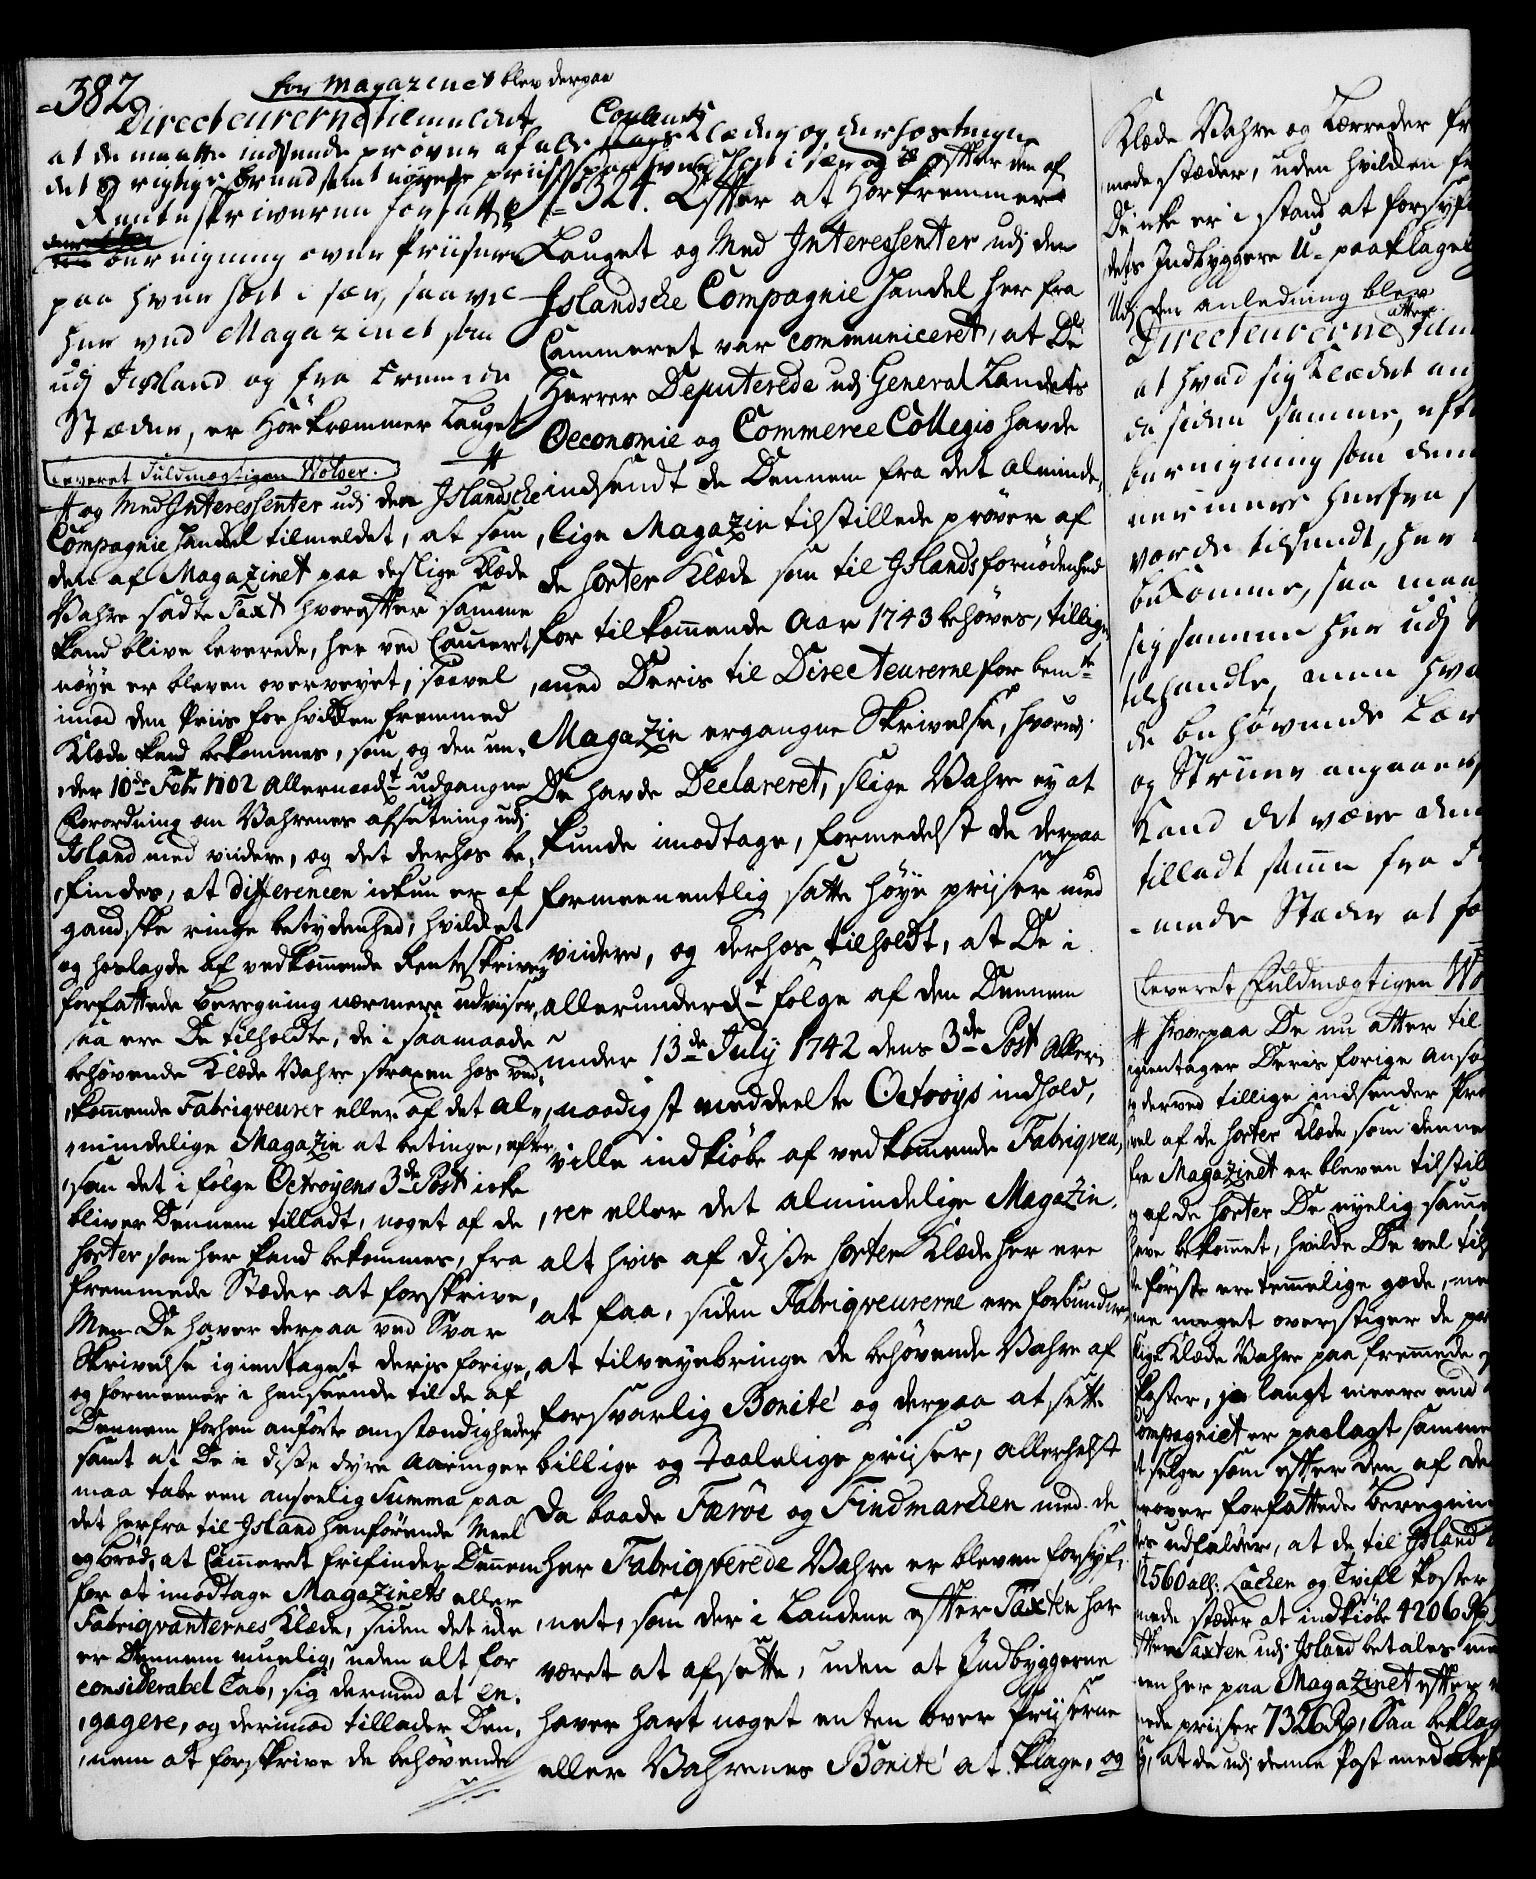 =382.
for Magazinet blev derpaa
Directeurerne tilmeldet
at de maatte indsende prøver af alle Couleurs Klæder og derhos tegne
det rigtige brud samt nøyeste priis paa hver Sort i sær og efter den af
Renteskriveren forfattede
beregning over Priiserne
paa hver sort i sær, saavel
her ved Magazinet som
udj Iisland og fra fremmede
Stæder, er Hörkræmmer Lauget
Leveret Fuldmægtigen Wölver.
# og Med Interessenter udj den Jslandsche
Compagnie Handel tilmeldet, at som
den af Magazinet paa deslige Klæde
Vahre sadte Taxt hvorefter samme
kand blive leverede, her ved Cameret
nøye er bleven overveyet, saavel
imod den Priis for hvilken fremmed
Klæde kand bekommes, som og den un¬
der 10de Febr 1702 Allernaadt udgangne
Forordning om Vahrenes afsetning udj
Jsland med viidere, og det derhos be¬
findes, at differencen ickun er af
gandske ringe betydenhed, hvilket
og hoslagde af vedkommende Renteskriver
forfattede beregning nærmere udviiser,
saa ere De tilholdte, de i saamaade
behøvende Klæde Vahre straxen hos ved¬
kommende Fabriqveurer eller af det al¬
mindelige Magazin at betinge, efter
som det i følge Octroyens 3de Post icke
bliver Dennem tilladt, noget af de
Sorter som her kand bekommes, fra
fremmede Stæder at forskrive,
Men De haver derpaa ved Svar
Skrivelse igientaget deris forige,
og formeener i henseende til de af
Dennem forhen anførte omstændigheder
samt at De i disse dyre Aaringer
maa tabe een anseelig Summa paa
det herfra til Jsland henførende Meel
og brød, at Cameret frifinder Dennem
for at imodtage Magazinets eller
Fabriqvanternes Klæde, siden det icke
er Dennem muelig, uden alt for
considerabel Tab, sig dermed at en¬
gagere, og derimod tillader Den¬
nem at forskrive de behøvende
#
=324. Efter at Hörkremmer
Lauget og Med Interessenter udj den
Jslandsche Compagnie Handel her fra
Cammeret var communiceret, at De
Herrer Deputerede udj General Landets
Oeconomie og Commerce Collegio havde
indsendt de Dennem fra det alminde¬
lige Magazin tilstillede prøver af
de sorter Klæde som til Jslands fornødenhed
for tilkommende Aar 1743 behøves, tillige
med Deris til Directeurerne for bemte
Magazin ergangne Skrivelse, hvorved
De havde Declareret, slige Vahre ey at
kunde imodtage, formedelst de derpaa
formeenentlig satte høye priiser med
viidere, og derhos tilholdt, at De i
allerunderdt følge af den Dennem
under 13de July 1742 dens 3de Post Aller¬
naadigst meddeelte Octroys indhold,
ville indkiøbe af vedkommende Fabriqveu¬
rer eller det almindelige Magazin
alt hvis af disse sorter Klæde her ere
at faa, siden Fabriqveurerne ere forbundne
at tilveyebringe de behøvende Vahre af
forsvarlig Bonité og derpaa at sette
billige og Taalelige priiser, allerhelst
da baade Færöe og Findmarcken med de
her Fabriqverede Vahre er bleven forsyf¬
net, som der i Landene efter Taxten har
været at afsette, uden at Indbyggerne
haver havt noget enten over Priiserne
eller Vahrenes Bonité at klage, og
Klæde Vahre og Lærreder fr
mede stæder, uden hvilken fr
De icke er i stand at forsyf
dets Indbyggere U-paaklagel
Udj den anledning blev
Directeurerne atter
at hvad sig Klædet an
da siden samme, efter
beregning som dem
nermere herfra
vorde tilsendt, her
bekomme, saa maa
sig samme her udj
tilhandle, men hva
de behøvende Lær
og Strumper angaaer,
Kand det være dem
tilladt samme fra
mede Stæder at fo
Leveret Fuldmægtigen Wö
# Hvorpaa De nu atter til
igientager Deris forige Ansø
og derved tillige indsender Prø
vel af de sorter Klæde som denne
fra Magazinet er bleven tilstil
og af de sorter De nyelig samme
have bekommet, hvilcke De vel til
de første ere temmelige gode, me
ne meget overstiger de pa
lige Klæde Vahre paa fremmede
koster, ja langt meere end
Compagniet er paalagt samme
at selge som efter den af de
herover forfattede beregnin
udfalder, at de til Jsland
2560 all: Lacken og Trifl koster
mede stæder at indkiøbe 4206 Rd
efter Taxten udj Jsland betales me
men her paa Magazinet efter
nede priiser 7326 Rd, Saa beklag
at de udj denne Post med